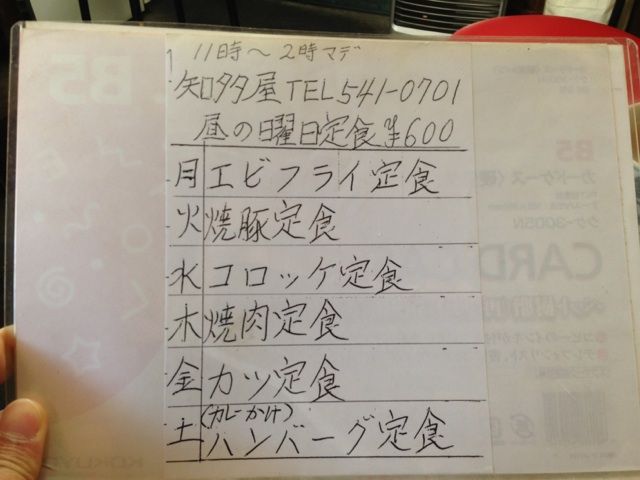 11時～2時マデ
知多屋 TEL541-0701
昼の日曜日定食 ¥600
月 エビフライ定食
火 焼豚定食
水 コロッケ定食
木 焼肉定食
金 カツ定食
(カレーかけ)
土 ハンバーグ定食
B5
カードケース
クケ-3005N
CARD
KOKUYO